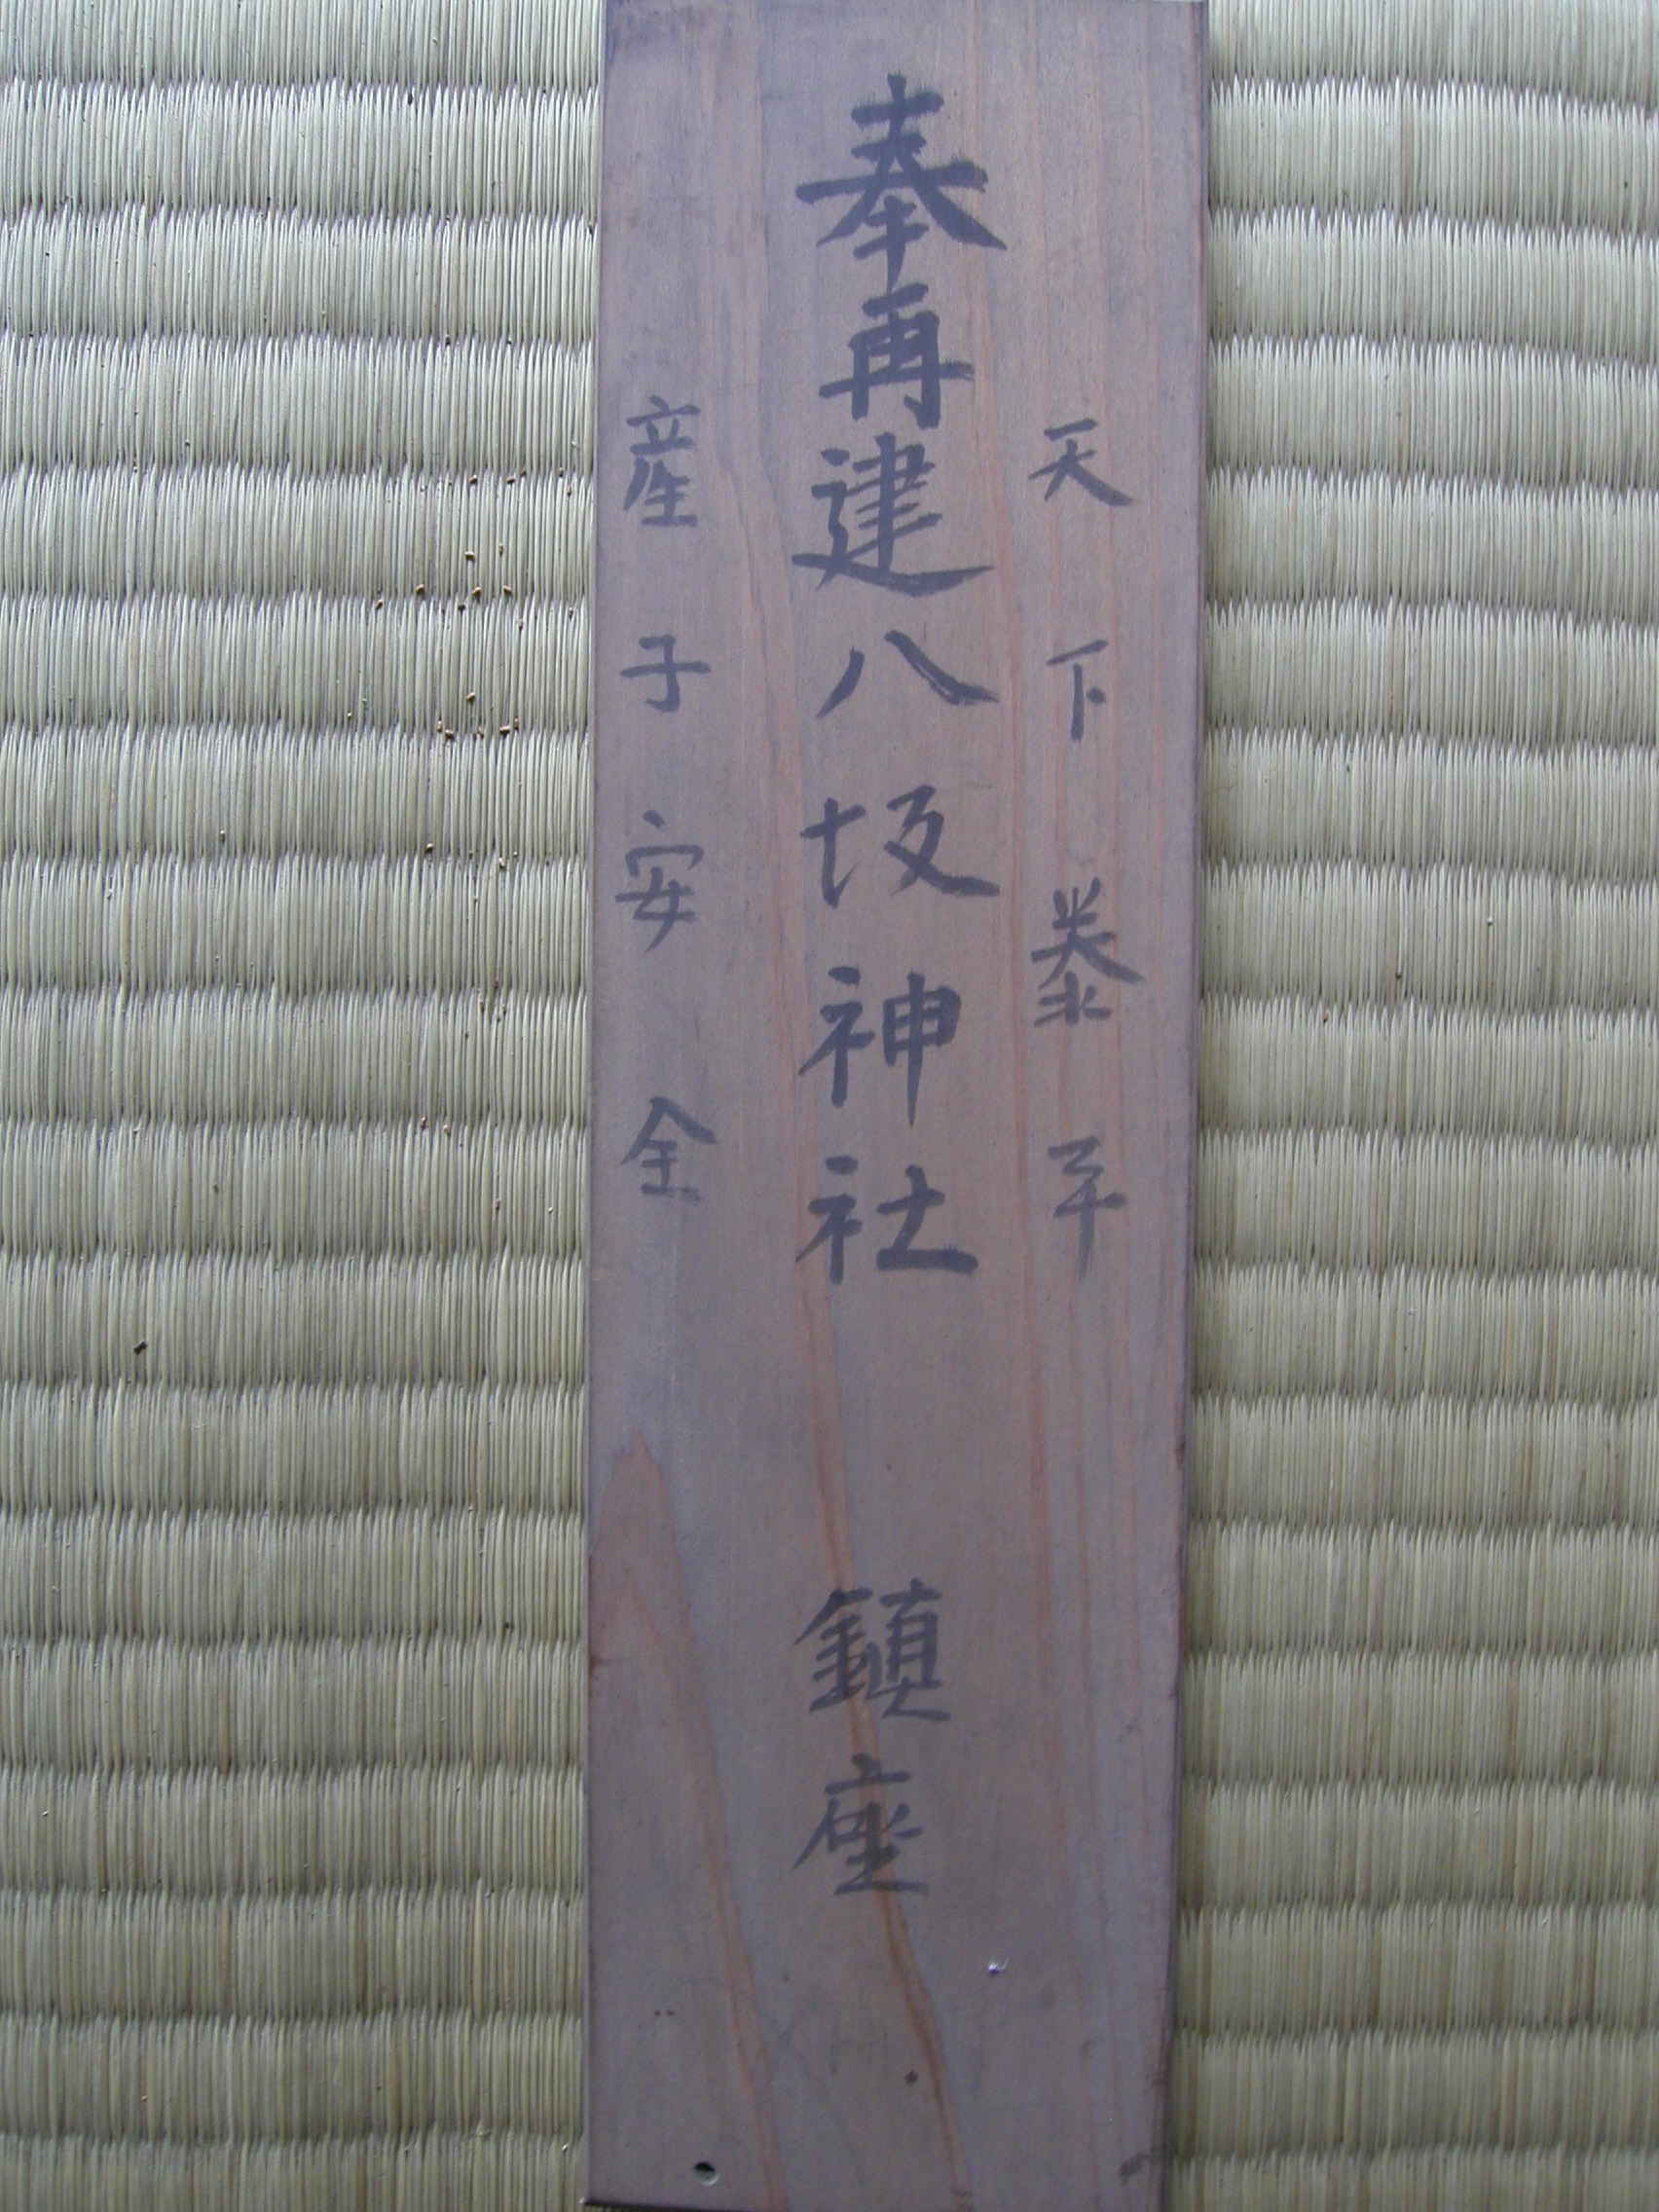 天下泰平
奉再建八坂神社 鎮座
産子安全